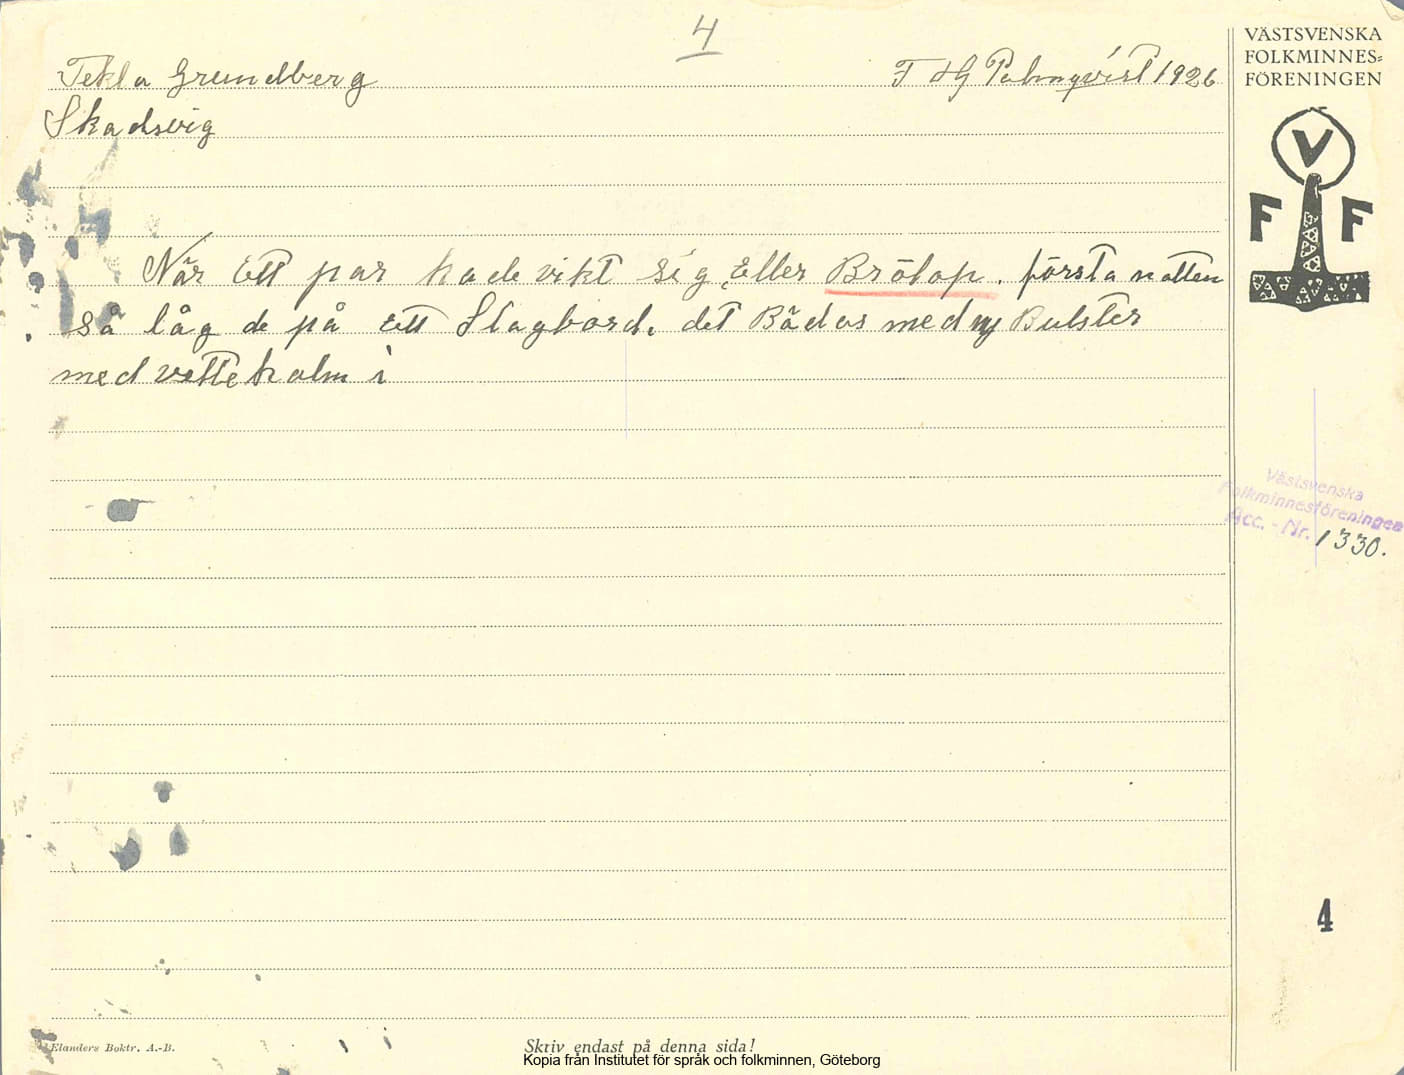 4
Tekla Grundberg
T HG Palmqvist 1926
Skadsvig
När Ett par hade vikt sig, Eller Brölop. första natten
så låg de på Ett Slagbord. det Bädas med ny Bulster
med vettehalm i
VÄSTSVENSKA
FOLKMINNES=
FÖRENINGEN
V
F F
Västsvenska
Folkminnesföreningen
Acc. - Nr. 1330.
4
Elanders Boktr. A.-B.
Skriv endast på denna sida!
Kopia från Institutet för språk och folkminnen, Göteborg